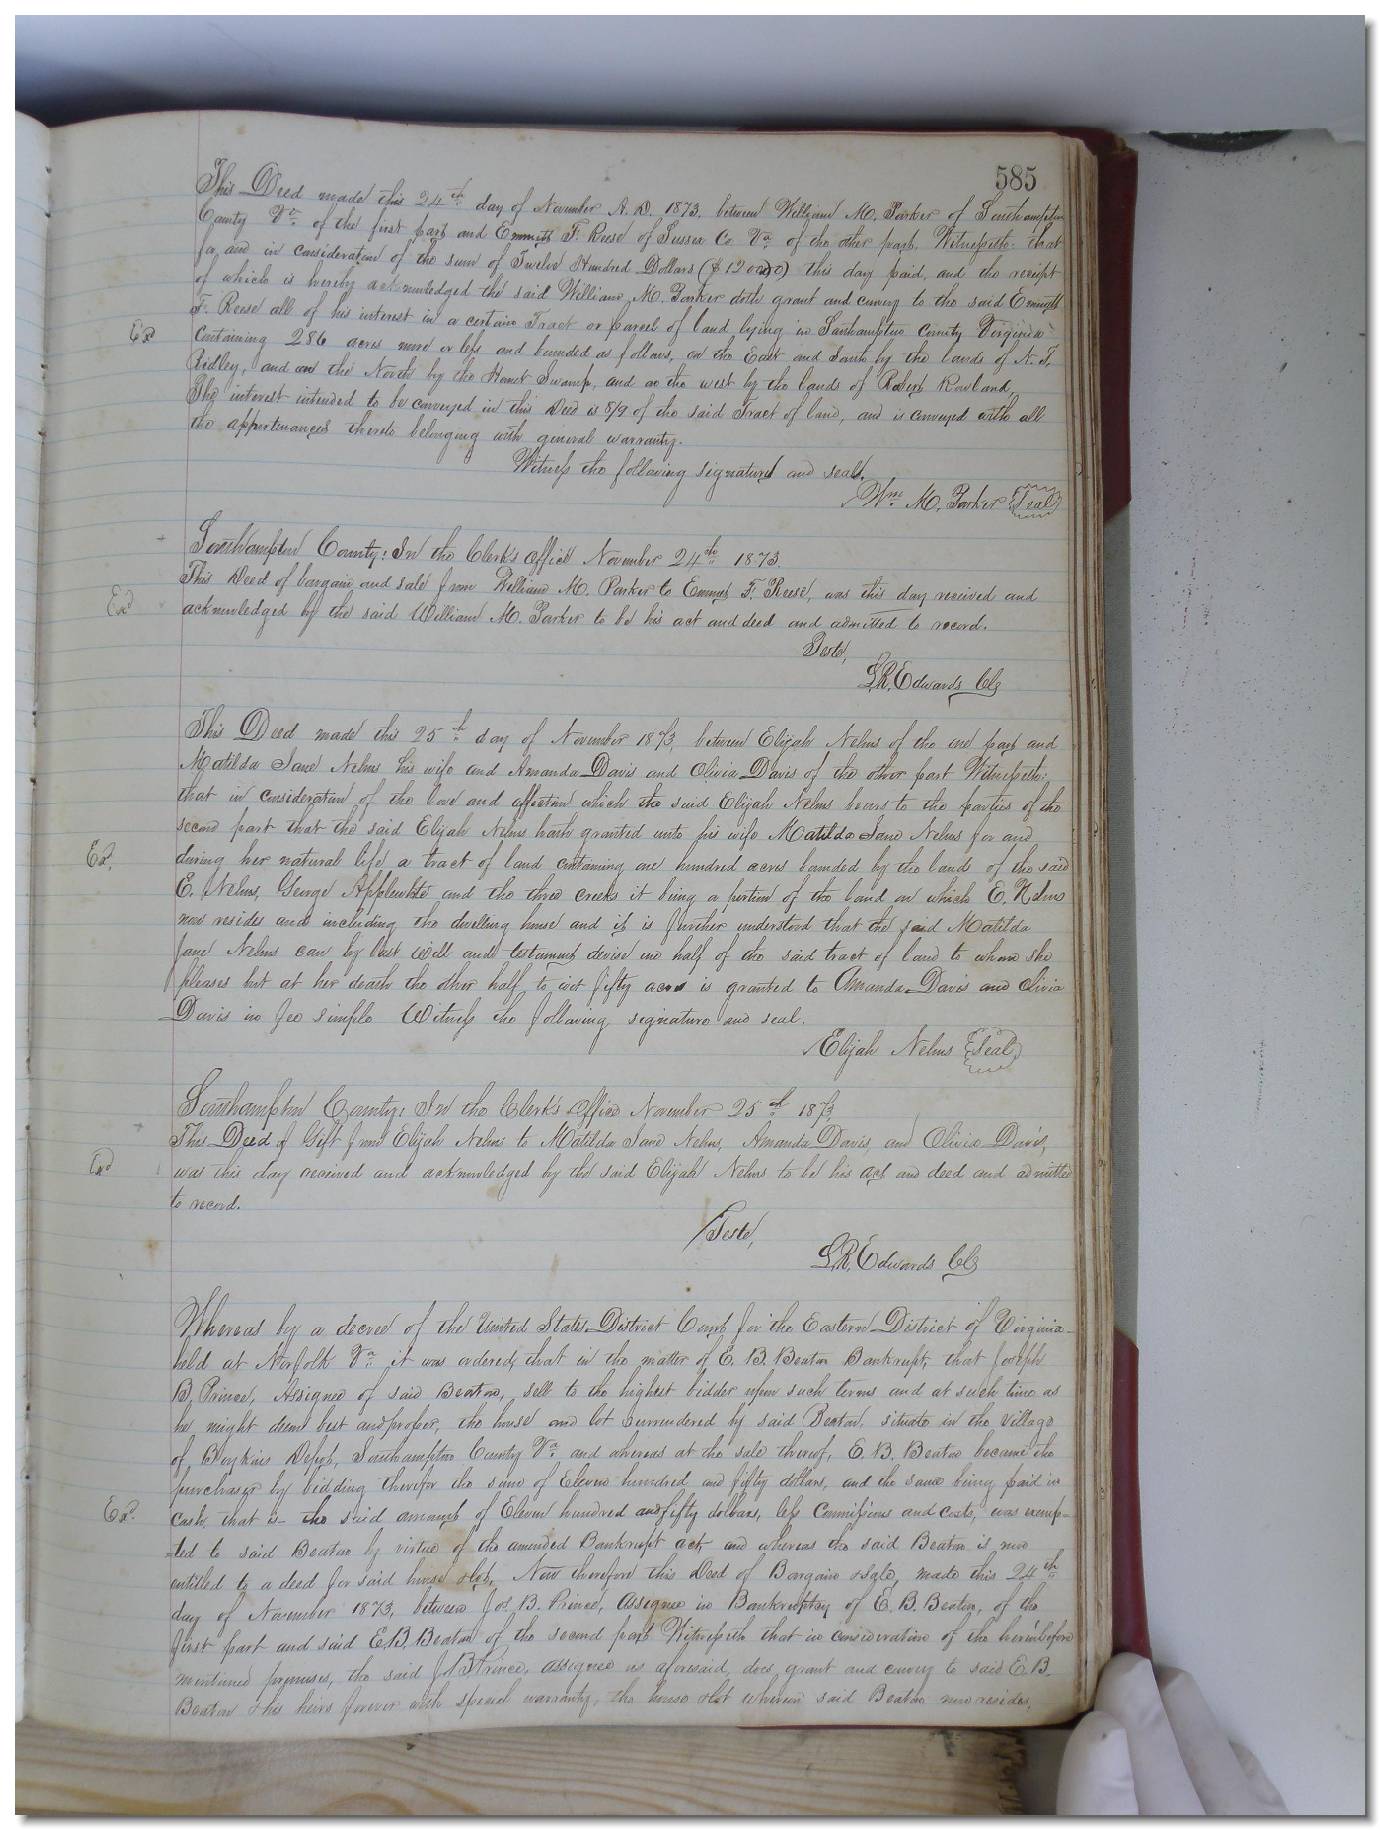 585
This Deed made this 24th day of November A.D. 1873. between William M. Parker of Southampton
County Va of the first part and Emmett F. Reese of Sussex Co. Va of the other part. Witnesseth: that
for and in consideration of the sum of Twelve Hundred Dollars ($1200.00) this day paid, and the receipt
of which is hereby acknowledged the said William M. Parker doth grant and convey to the said Emmett
F. Reese all of his interest in a certain Tract or parcel of land lying in Southampton County Virginia
Exd
Containing 286 acres more or less and bounded as follows, on the East and South by the lands of N. T.
Ridley, and on the North by the Swamp, and on the west by the lands of Robert Rowland,
The interest intended to be conveyed in this Deed is 8/9 of the said Tract of land, and is conveyed with all
the appurtenances thereto belonging with general warranty.
Witness the following signature and seal.
Wm M. Parker {Seal}
Southampton County: In the Clerk's Office November 24th 1873.
This Deed of bargain and sale from William M. Parker to Emmet F. Reese, was this day received and
Exd
acknowledged by the said William M. Parker to be his act and deed and admitted to record.
Teste,
L.R. Edwards Clk
This Deed made this 25th day of November 1873, between Elijah Nelms of the one part and
Matilda Jane Nelms his wife and Amanda Davis and Olivia Davis of the other part Witnesseth:
that in consideration of the love and affection which the said Elijah Nelms bears to the parties of the
second part that the said Elijah Nelms hath granted unto his wife Matilda Jane Nelms for and
Exd.
during her natural life a tract of land containing one hundred acres bounded by the lands of the said
E. Nelms, George Applewhite and the three creeks it being a portion of the land on which E. Nelms
now resides and including the dwelling house and it is further understood that the said Matilda
Jane Nelms can by last will and testament devise one half of the said tract of land to whom she
pleases but at her death the other half to wit fifty acres is granted to Amanda Davis and Olivia
Davis in fee simple Witness the following signature and seal.
Elijah Nelms {Seal}
Southampton County: In the Clerk's Office November 25th 1873,
This Deed of Gift from Elijah Nelms to Matilda Jane Nelms, Amanda Davis, and Olivia Davis,
Exd
was this day received and acknowledged by the said Elijah Nelms to be his act and deed and admitted
to record.
Teste,
L.R. Edwards Clk
Whereas by a decree of the United States District Court for the Eastern District of Virginia
held at Norfolk Va it was ordered, that in the matter of E. B. Beaton Bankrupt, that Joseph
B. Prince, Assignee of said Beaton, sell to the highest bidder upon such terms and at such time as
he might deem best and proper, the house and lot surrendered by said Beaton, situate in the village
of Boykins Depot, Southampton County Va and whereas at the sale thereof, E. B. Beaton became the
purchaser by bidding therefor the sum of Eleven hundred and fifty dollars, and the same being paid in
Exd.
cash, that is the said amount of Eleven hundred and fifty dollars, less Commissions and costs, was exemp-
-ted to said Beaton by virtue of the amended Bankrupt act, and whereas the said Beaton is now
entitled to a deed for said house & lot, Now therefore this Deed of Bargain & sale, made this 24th
day of November 1873, between Jos. B. Prince, Assignee in Bankruptcy of E. B. Beaton, of the
first part and said E.B. Beaton of the second part Witnesseth that in consideration of the hereinbefore
mentioned premises, the said J. B Prince, assignee as aforesaid, does grant and convey to said E. B.
Beaton & his heirs forever with special warranty, the house & lot whereon said Beaton now resides,